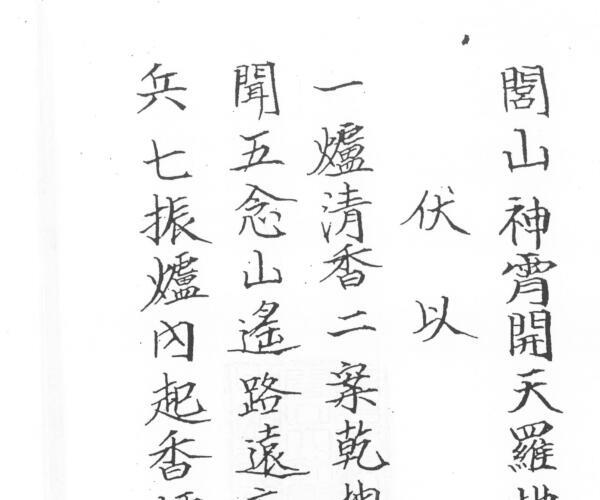 閭山神霄開天羅地
伏以
一爐清香二案乾坤
聞五念山遙路遠
兵七振爐內起香